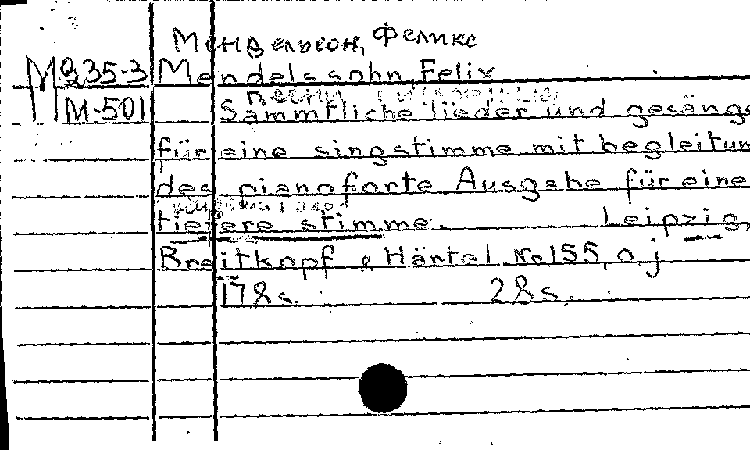 Мендельсон, Феликс
М235-3 Mendelssohn, Felix
М-501 Sämmtliche lieder und gesänge
für eine singstimme mit begleitun
des pianoforte Ausgabe für eine
tiefere stimme. Leipzig,
Breitkopf & Härtel No 155, o, j
178 s. 28 s.